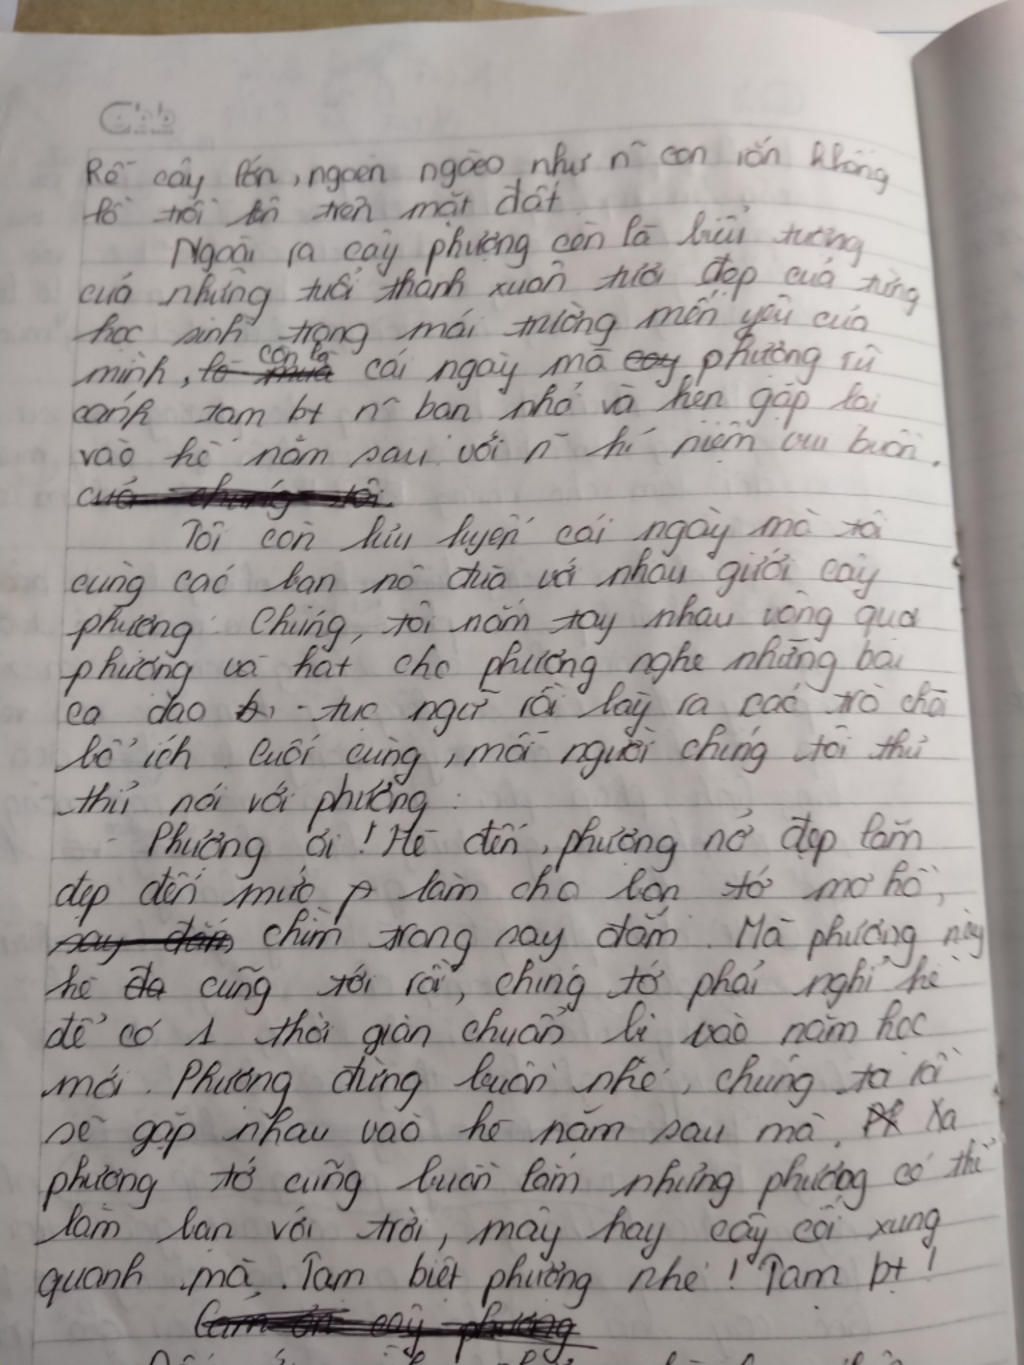 Rễ cây lớn, ngoằn ngoèo như n~ con rắn khổng
lồ trồi lên trên mặt đất
Ngoài ra cây phượng còn là biểu tượng
của những tuổi thanh xuân tươi đẹp của từng
học sinh trong mái trường mến yêu của
minh, còn là cái ngày mà phượng rũ
cánh tạm bt n~ bạn nhỏ và hẹn gặp lại
vào hè năm sau với n~ kỉ niệm vui buồn.
của chúng tôi.
Tôi còn lưu luyến cái ngày mà tôi
cùng các bạn nô đùa với nhau giưới cây
phượng. Chúng tôi nắm tay nhau vòng qua
phượng và hát cho phượng nghe những bài
ca dao - tục ngữ rồi lấy ra các trò chơi
bổ ích. Cuối cùng, mỗi người chúng tôi thủ
thỉ nói với phượng:
- Phượng ơi! Hè đến, phượng nở đẹp lắm
đẹp đến mức p làm cho bọn tớ mơ hồ,
say đắm chìm trong say đắm. Mà phượng này
hè đa cũng tới rồi, chúng tớ phải nghỉ hè
để có 1 thời gian chuẩn bị vào năm học
mới. Phượng đừng buồn nhé, chúng ta rồi
sẽ gặp nhau vào hè năm sau mà. Xa
phượng tớ cũng buồn lắm nhưng phượng có thể
làm bạn với trời, mây hay cây cối xung
quanh mà. Tạm biệt phượng nhé! Tạm bt!
Cảm ơn cây phượng